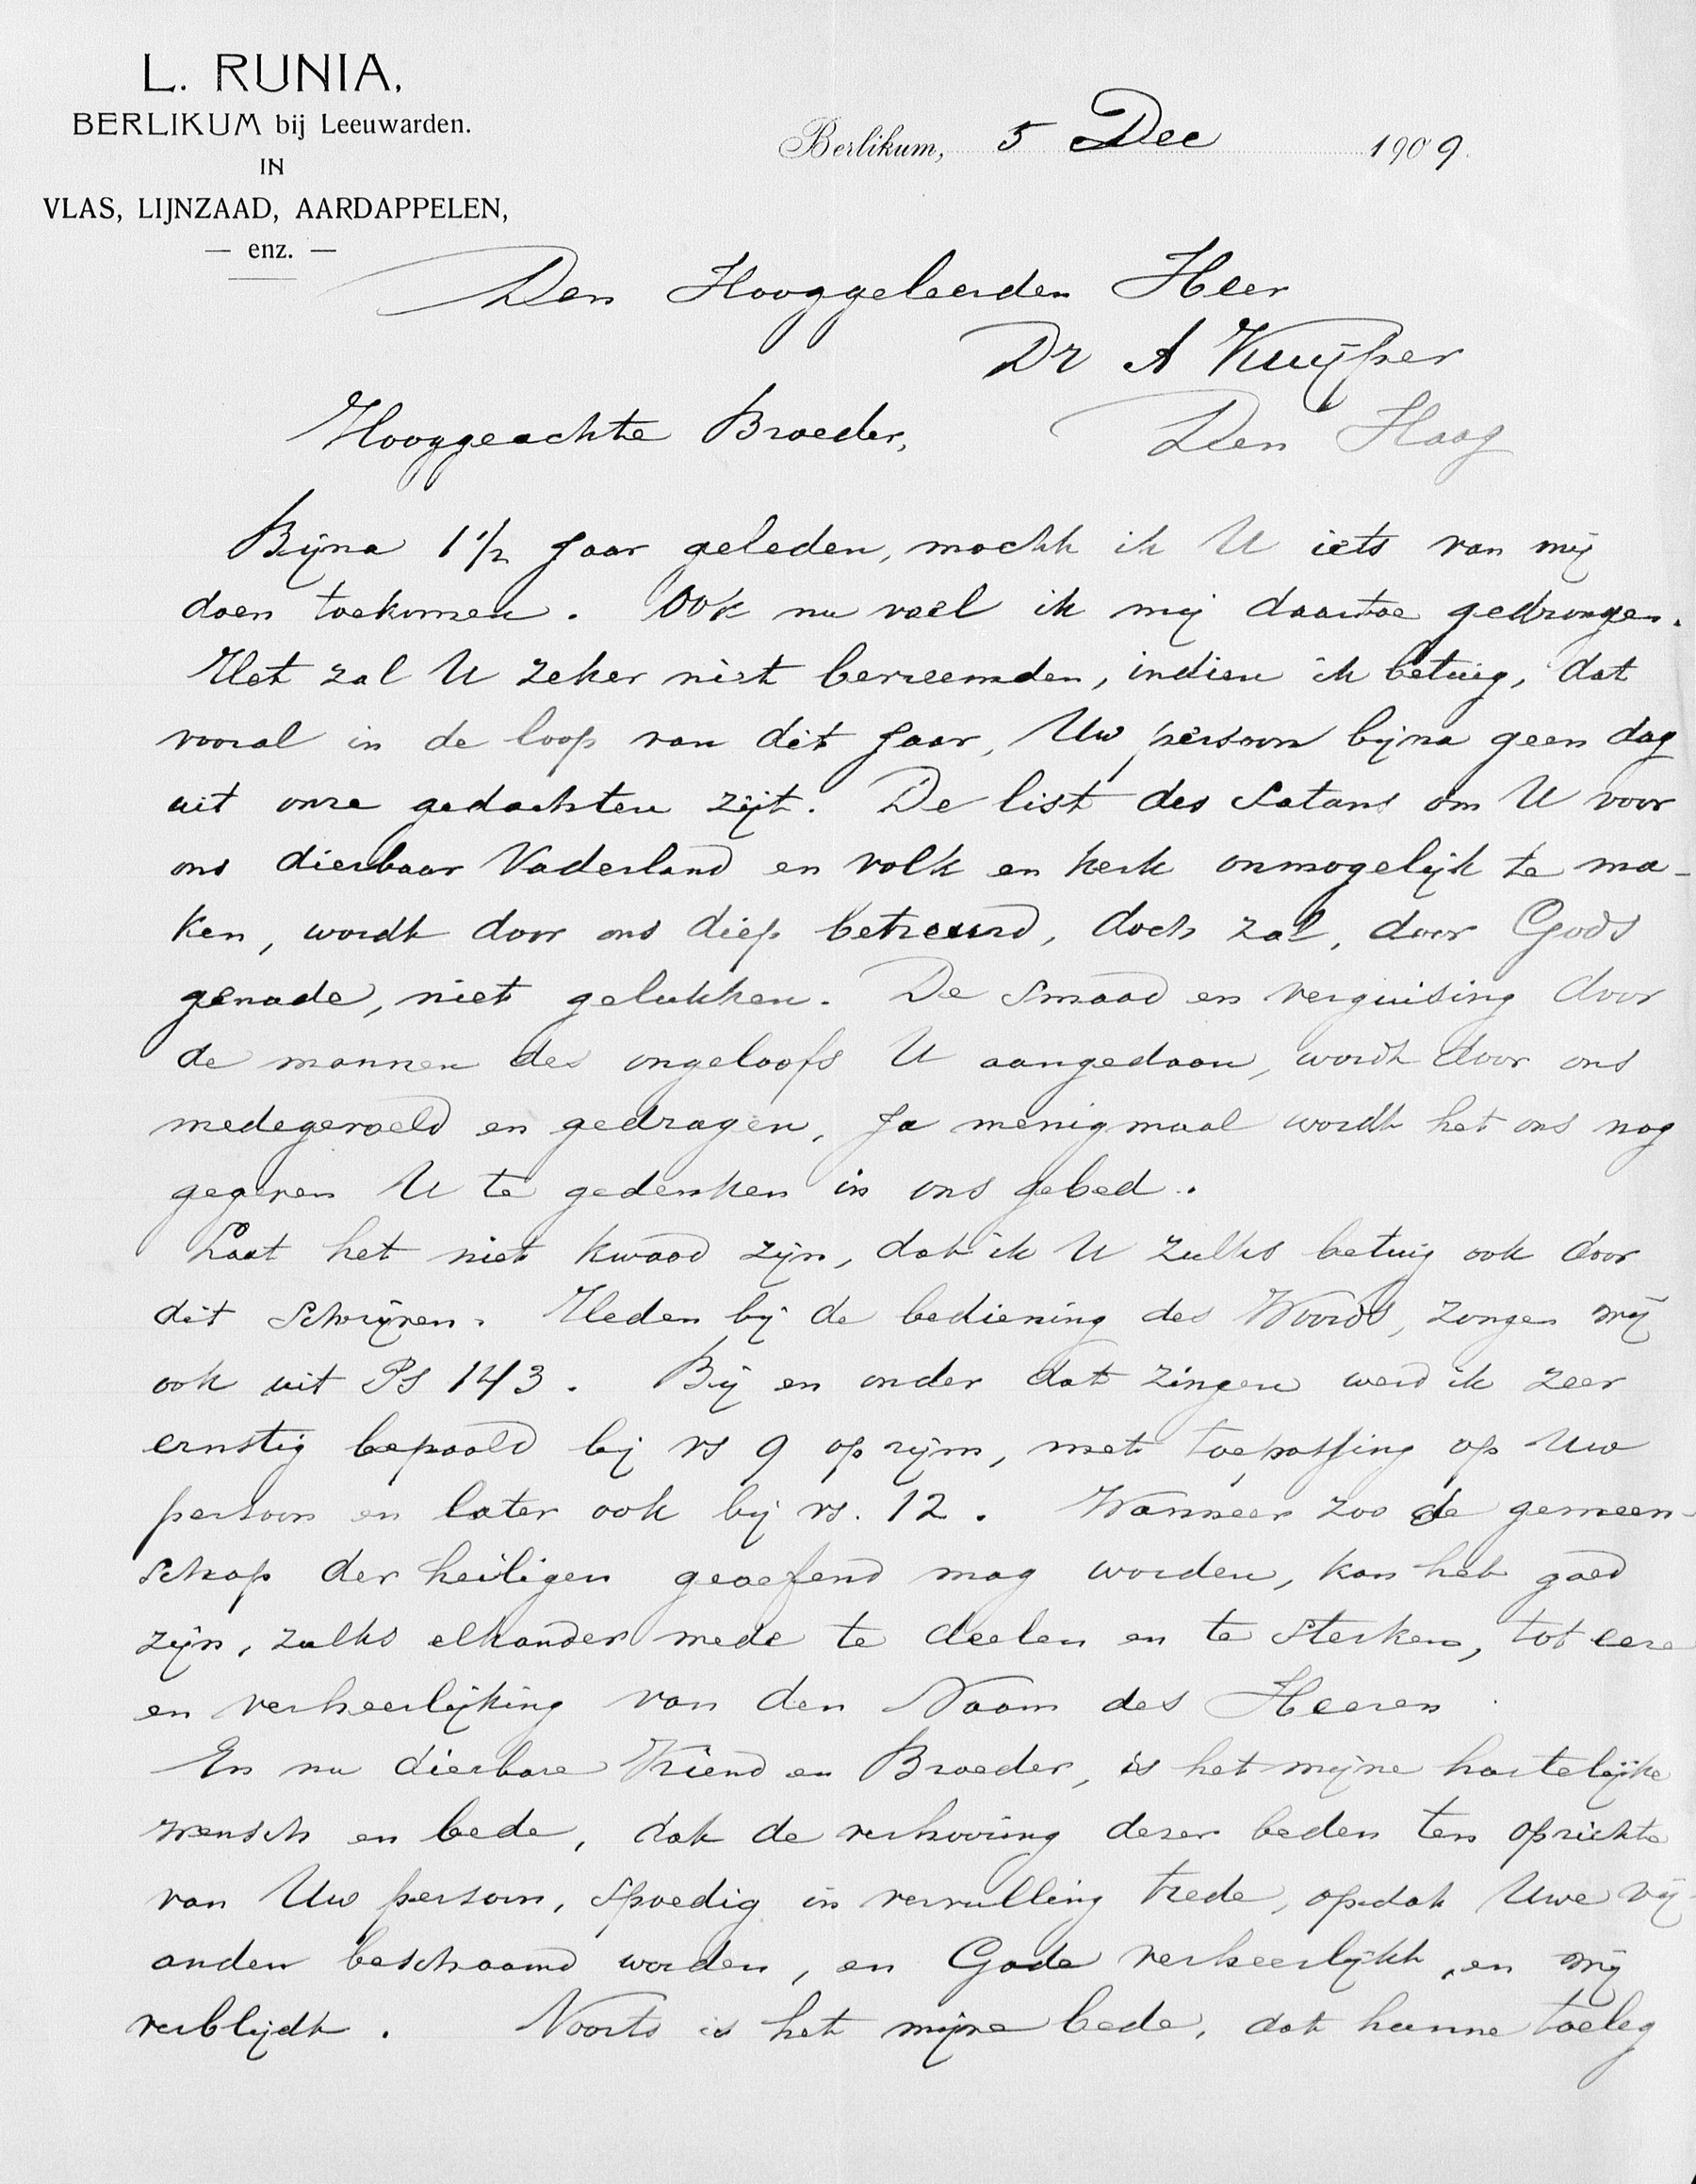 L. RUNIA,
BERLIKUM bij Leeuwarden.
IN
VLAS, LIJNZAAD, AARDAPPELEN,
— enz. —
Berlikum, 5 Dec 1909.
Den Hooggeleerden Heer
Dr A Kuijper
Hooggeachte Broeder,
Den Haag
Bijna 1 1/2 Jaar geleden, mocht ik U iets van mij
doen toekomen. Ook nu voel ik mij daartoe gedrongen.
Het zal U zeker niet bevreemden, indien ik betuig, dat
vooral in de loop van dit Jaar, Uw persoon bijna geen dag
uit onze gedachten zijt. De list des Satans om U voor
ons dierbaar Vaderland en volk en kerk onmogelijk te ma-
ken, wordt door ons diep betreurd, doch zal, door Gods
genade, niet gelukken. De smaad en verguising door
de mannen des ongeloofs U aangedaan, wordt door ons
medegevoeld en gedragen, Ja menigmaal wordt het ons nog
gegeven U te gedenken in ons gebed.
Laat het niet kwaad zijn, dat ik U zulks betuig ook door
dit schrijven. Heden bij de bediening des Woords, zongen wij
ook uit Ps 143. Bij en onder dat zingen werd ik zeer
ernstig bepaald bij vs 9 op rijm, met toepassing op Uw
persoon en later ook bij vs. 12. Wanneer zoo de gemeen-
schap der heiligen geoefend mag worden, kan het goed
zijn, zulks elkander mede te deelen en te sterken, tot eere
en verheerlijking van den Naam des Heeren.
En nu dierbare Vriend en Broeder, is het mijne hartelijke
wensch en bede, dat de verhooring dezer beden ten opzichte
van Uw persoon, spoedig in vervulling trede, opdat Uwe vij-
anden beschaamd worden, en Gode verheerlijkt, en wij
verblijdt. Voorts is het mijne bede, dat hunne toeleg